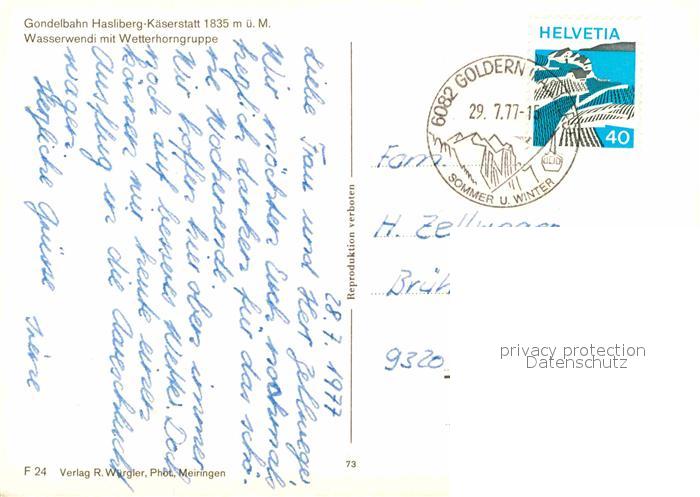 Gondelbahn Hasliberg-Käserstatt 1835 m ü. M.
Wasserwendi mit Wetterhorngruppe
28.7.1977
Liebe Frau und Herr Zellweger
Wir möchten Euch nochmals
herzlich danken für das schö-
ne Wochenende.
Wir hoffen hier oben immer
noch auf besseres Wetter. Doch
können wir heute einen
Ausflug in die Aareschlucht
wagen.
Herzliche Grüsse Irene
F 24 Verlag R. Würgler, Phot., Meiringen
73
Reproduktion verboten
HELVETIA
40
6082 GOLDERN
29.7.77-1
SOMMER U. WINTER
Fam.
H. Zellweger
Brüh
9320
privacy protection
Datenschutz